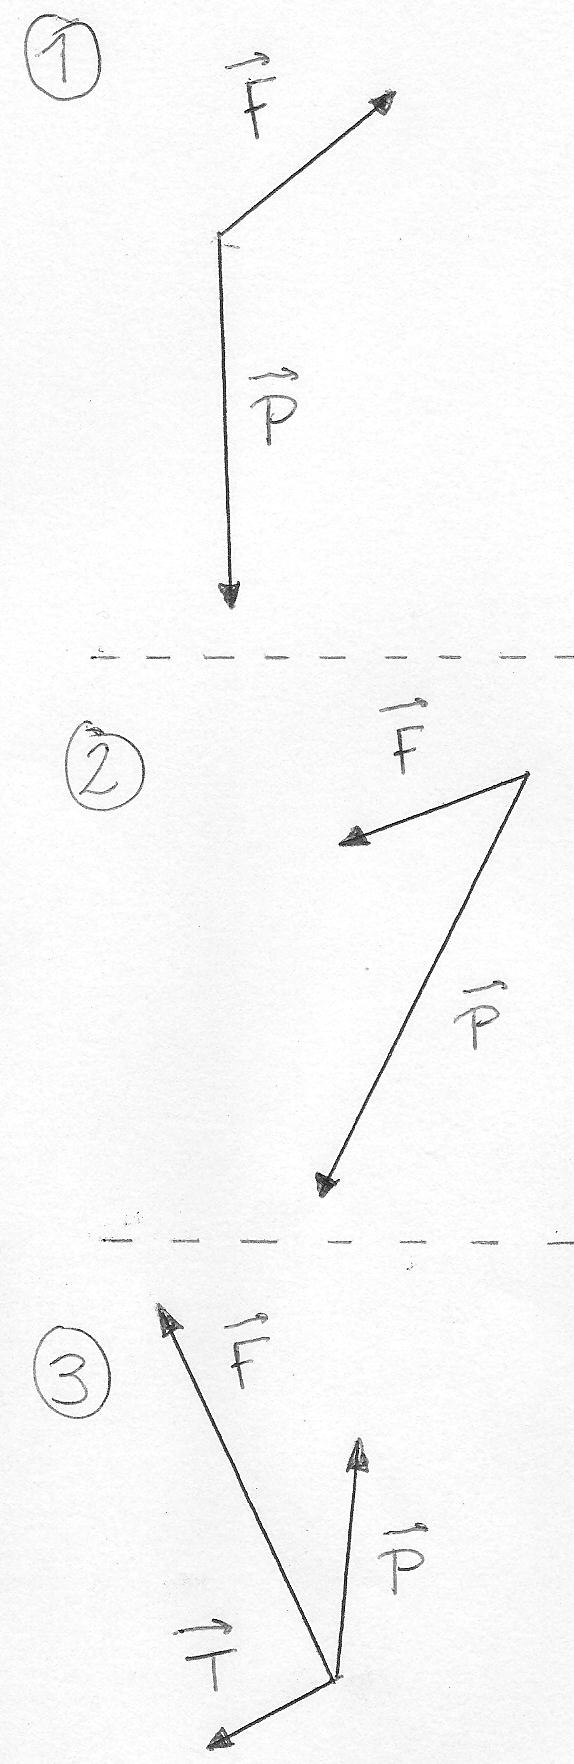 1
F
P
2
F
P
3
F
P
T